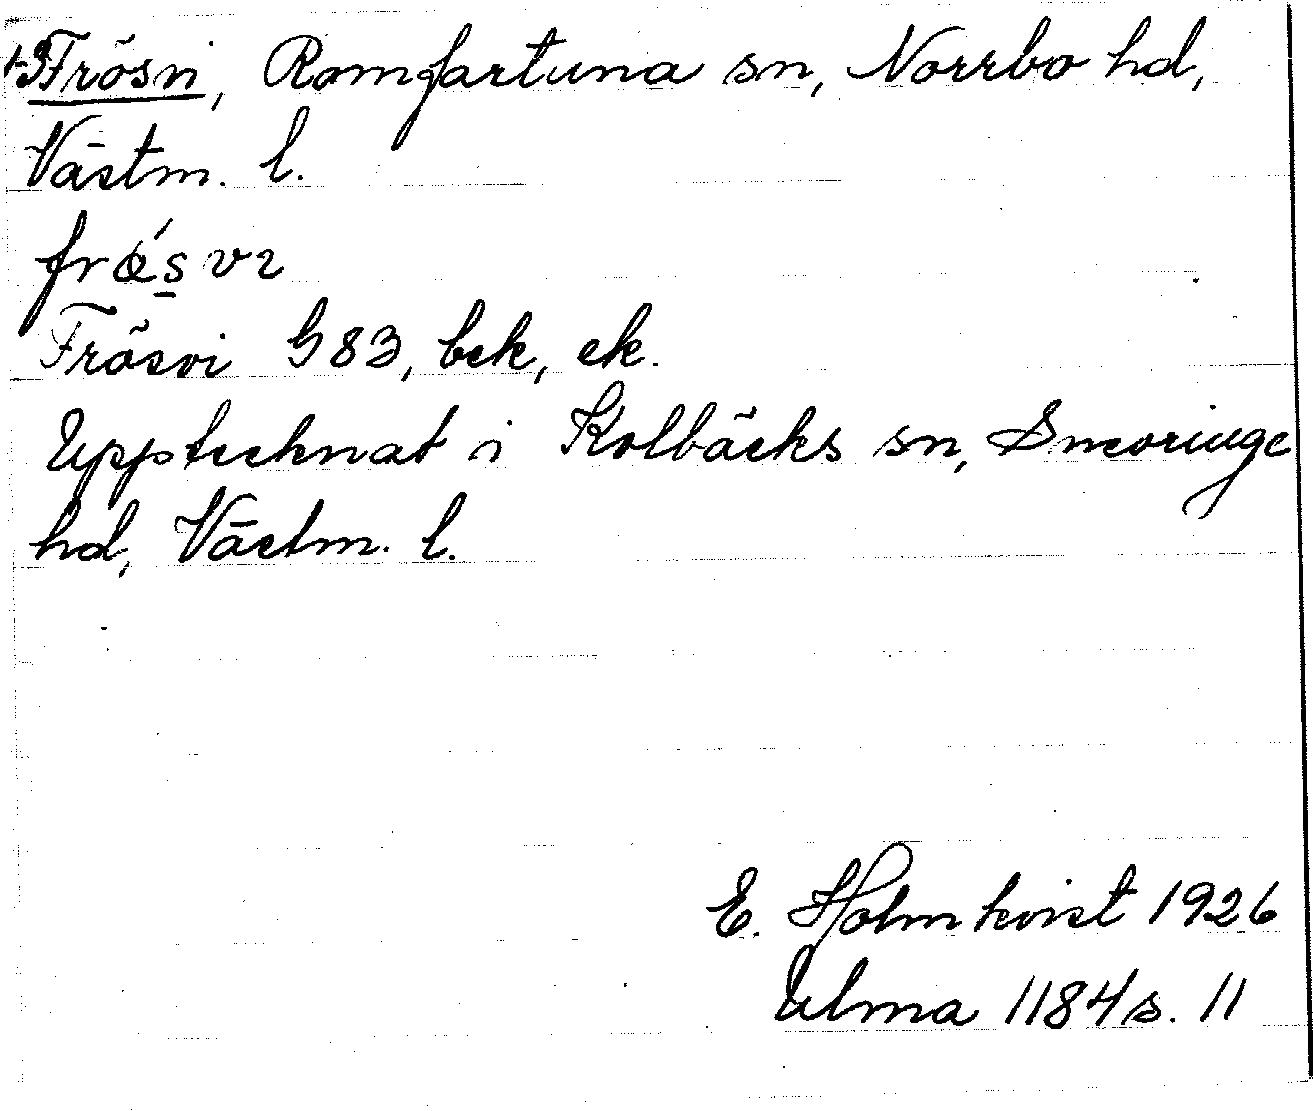 Frösvi, Romfartuna sn, Norrbo hd,
Västm. l.
frǿs̱vɩ
Frösvi G83, bek, ek.
Upptecknat i Kolbäcks sn, Snevringe
hd, Västm. l.
E. Holmkvist 1926
Ulma 1184 s. 11